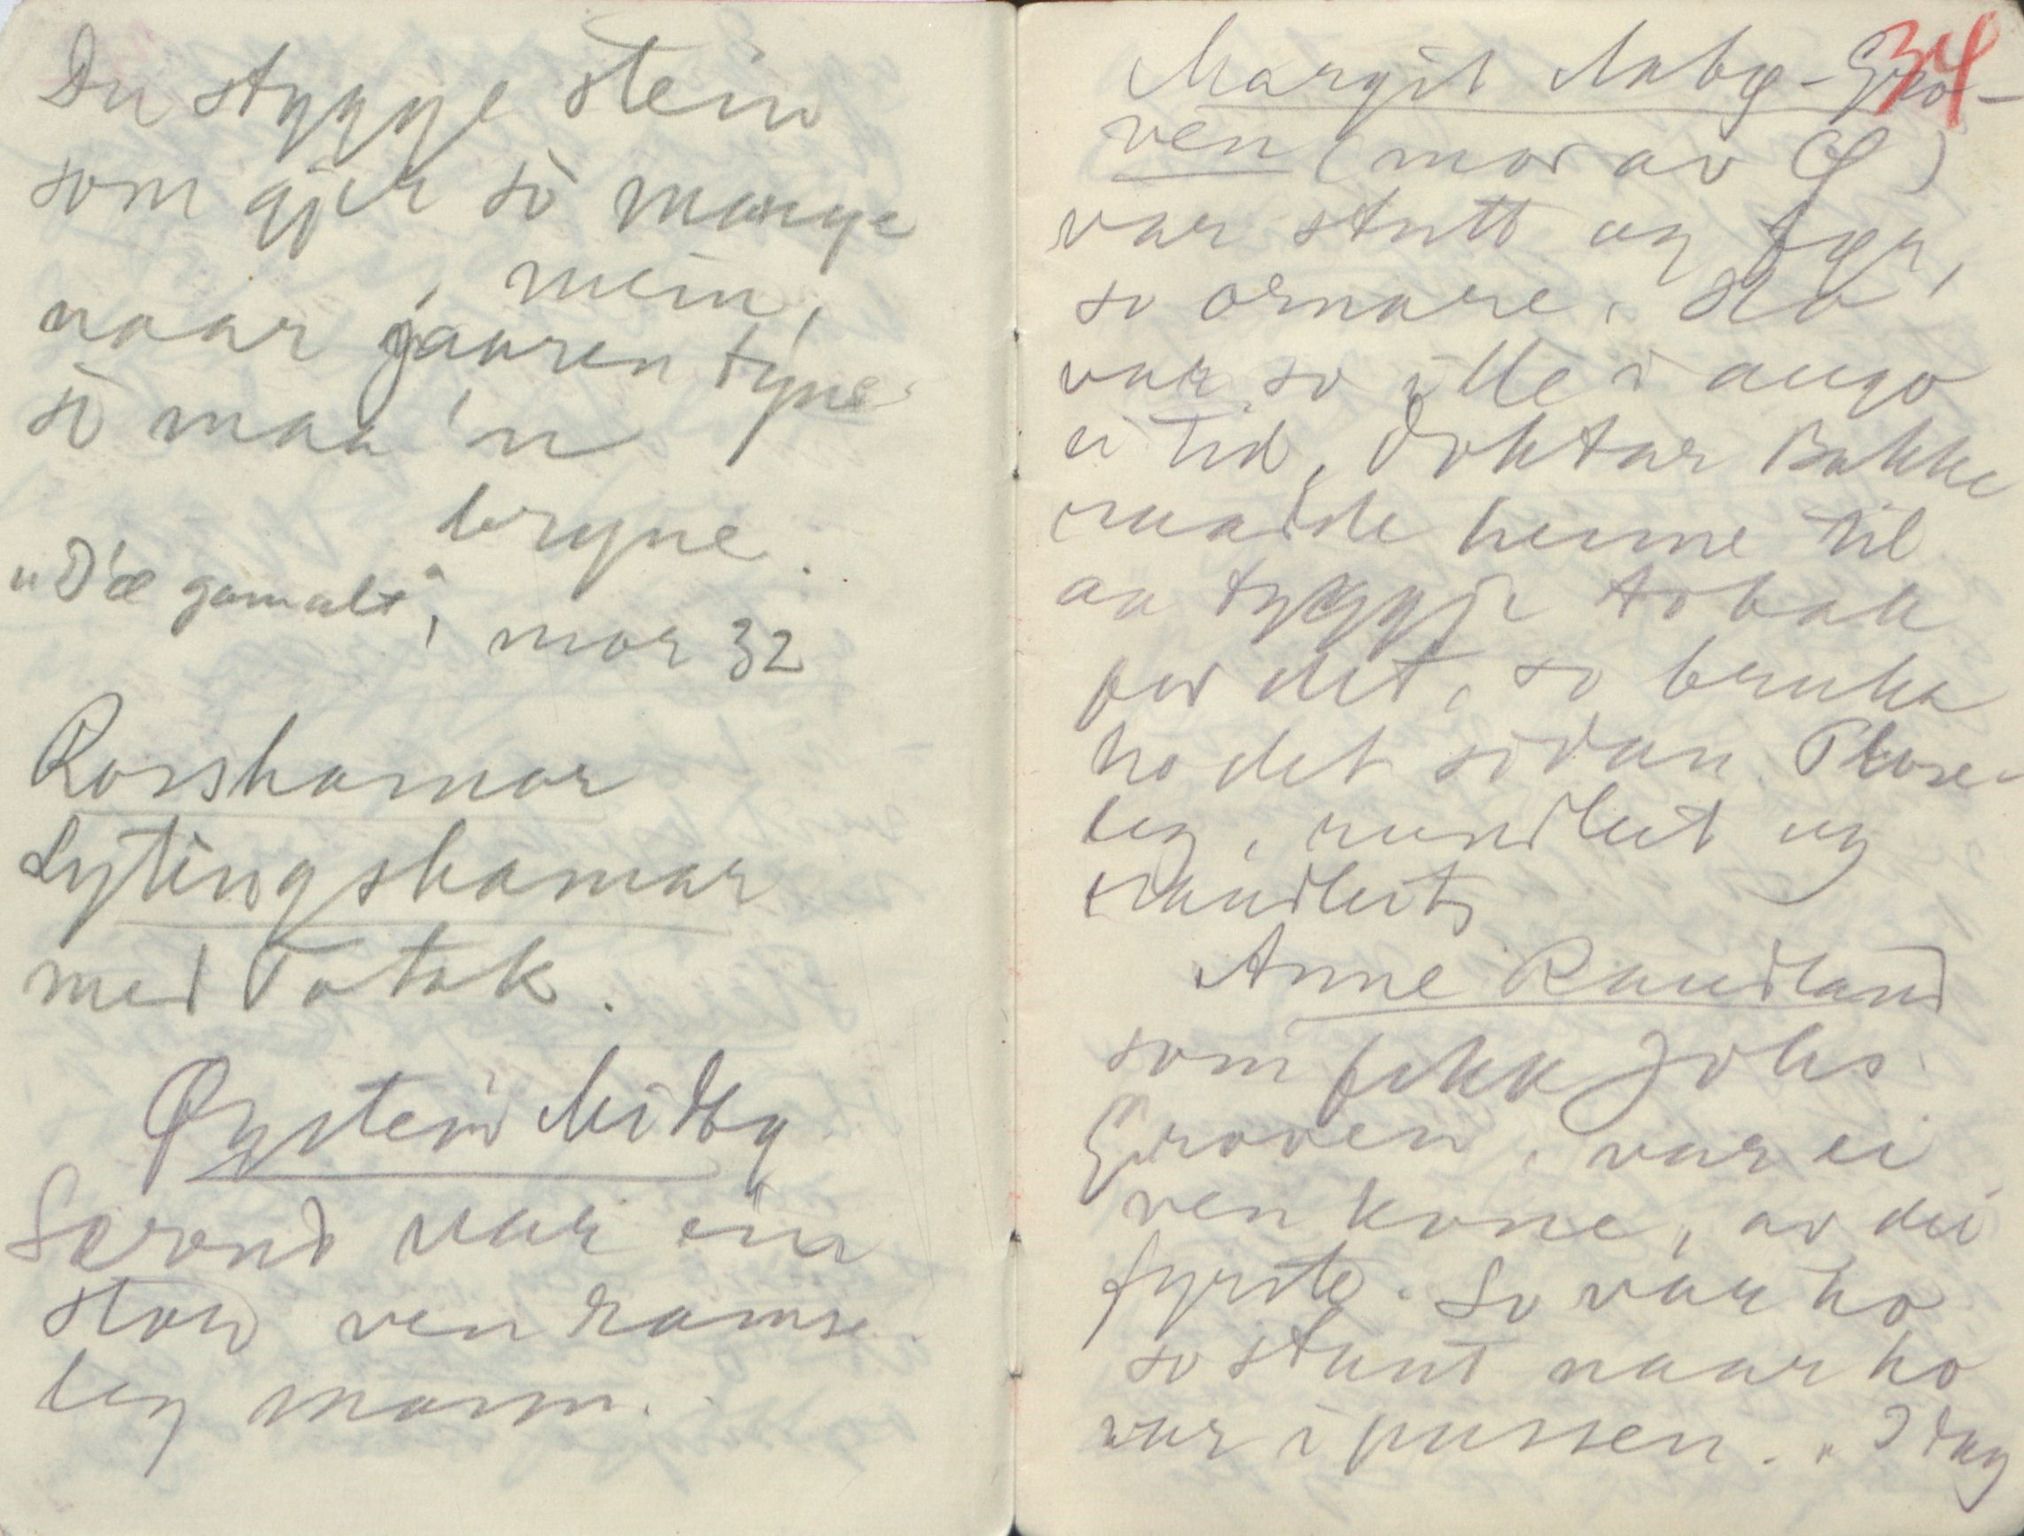 Du stygge stein
som gjer sò mange
mein,
naar jaaren tyne
sò maa 'n
bryne.
"D'æ gamalt", mor 32
Rosshamar
Lytingshamar
med Totak.
Øystein Midtby
Særond var ein
stor ven ramse-
leg mann.
34
Margit Aaby-Gro-
ven (mor av Ø)
var stutt og før,
so ornare. Ho
var so ille i augo
ei tid, Doktar Bakke
raadde henne til
aa tyggje tobak
for det, so bruka
ho det sidan. Plose-
leg, rundleit og
raudleit,
Anne Raudland
som fekk Johs.
Groven, var ei
ven kone, av dei
fyrste. So var ho
so stunt naar ho
var i pussen. "I dag